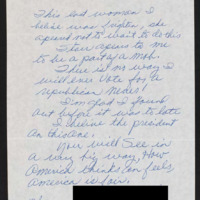 This last women I
belive was frighten, she
agreed not to want to do this
Starr agens to me
to be a part of a Mob.
There is no way I
will ever Vote for a
republican Never!
I'm glad I found
out before it was to late
I believe the president
An this Case.
You will see in
a very big way, How
America thinks an feels
America is fair.